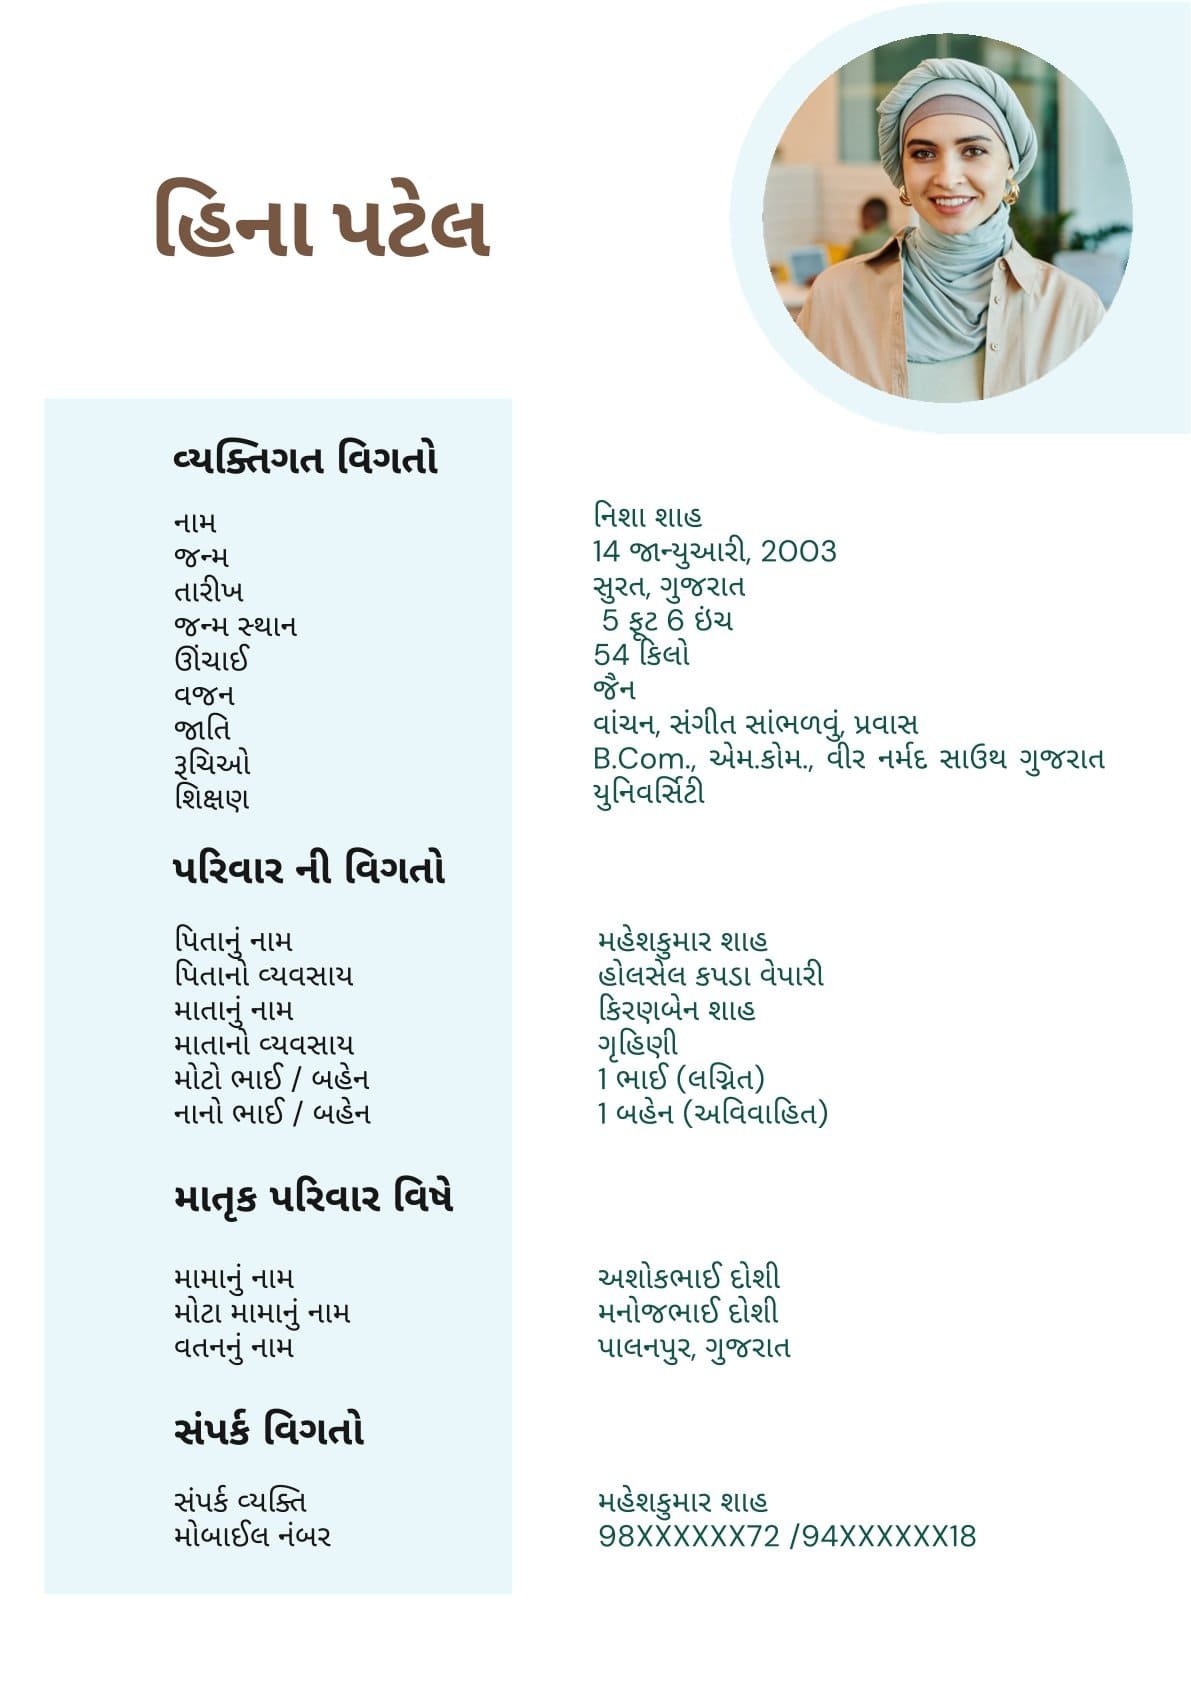 હિના પટેલ
વ્યક્તિગત વિગતો
નામ
નિશા શાહ
જન્મ
14 જાન્યુઆરી, 2003
તારીખ
સુરત, ગુજરાત
જન્મ સ્થાન
5 ફૂટ 6 ઇંચ
ઊંચાઈ
54 કિલો
વજન
જૈન
જાતિ
વાંચન, સંગીત સાંભળવું, પ્રવાસ
રૂચિઓ
B.Com., એમ.કોમ., વીર નર્મદ સાઉથ ગુજરાત
શિક્ષણ
યુનિવર્સિટી
પરિવાર ની વિગતો
પિતાનું નામ
મહેશકુમાર શાહ
પિતાનો વ્યવસાય
હોલસેલ કપડા વેપારી
માતાનું નામ
કિરણબેન શાહ
માતાનો વ્યવસાય
ગૃહિણી
મોટો ભાઈ / બહેન
1 ભાઈ (લગ્નિત)
નાનો ભાઈ / બહેન
1 બહેન (અવિવાહિત)
માતૃક પરિવાર વિષે
મામાનું નામ
અશોકભાઈ દોશી
મોટા મામાનું નામ
મનોજભાઈ દોશી
વતનનું નામ
પાલનપુર, ગુજરાત
સંપર્ક વિગતો
સંપર્ક વ્યક્તિ
મહેશકુમાર શાહ
મોબાઈલ નંબર
98XXXXXX72 /94XXXXXX18